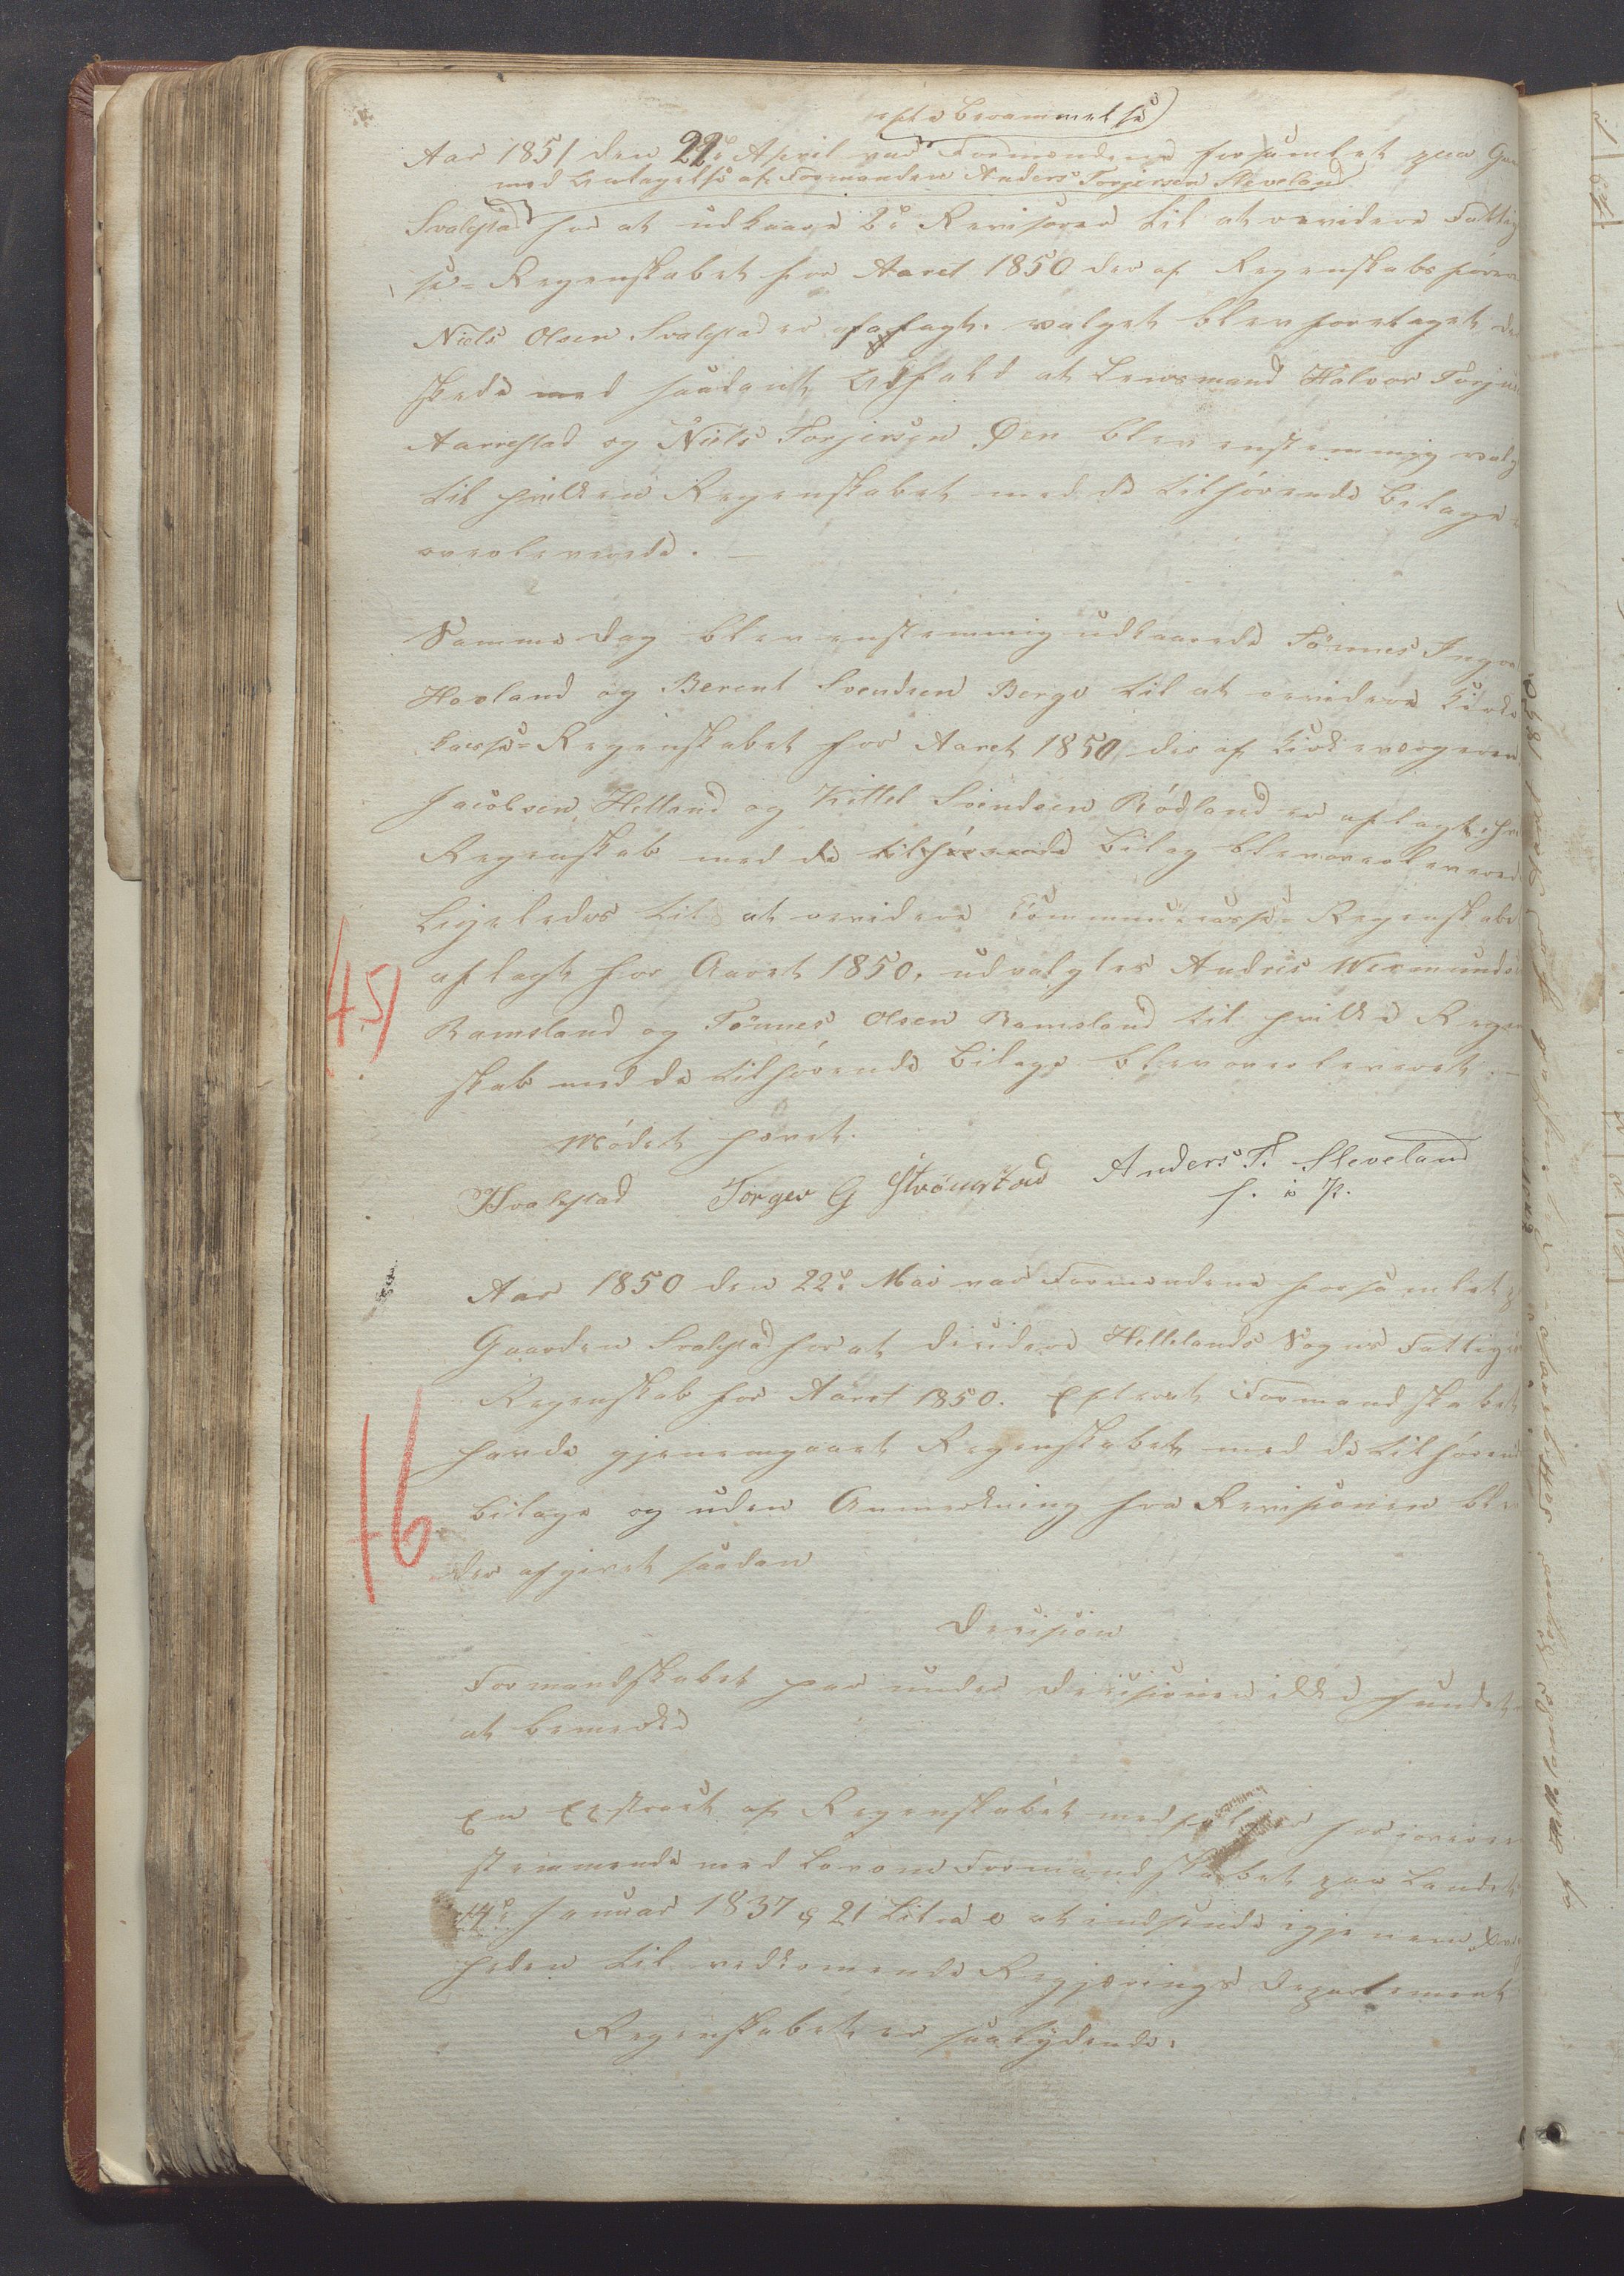 efter Berammelse
Aar 1851 den 22de April var Formændene forsamlet paa Gaa
med Undtagelse af Formanden Anders Torjersen Sleveland
Svalestad for at udkaare 2de Revisorer til at revidere Fattig
se-Regenskabet for Aaret 1850 der af Regenskabsfører
Niels Olsen Svalestad er aflagt. valget blev foretaget, de
skede med saadant Udfald at Lensmand Halvor Torjus
Aarrestad og Niels Torjersen Øen blev enstemmig valg
til hvilken Regenskabet med de tilhørende Bilage
overleverede. —
Samme dag blev enstemmig udkaarede Tönnes Ingva
Hovland og Berent Svendsen Berge til at revidere Kirke
kasse-Regenskabet for Aaret 1850 der af Kirkeværgeren
Jacobsen Helland og Kittel Svendsen Rödland er aflagt, hv
Regenskab med de tilhörende Bilag blev overlevered
Ligeledes til at revidere Communecasse-Regenskabe
aflagt for Aaret 1850, udvalgtes Andreis Wermunds
Ramsland og Tönnes Olsen Ramsland til hvilke Regen
skab med de tilhørende Bilage blev overleveret. —
45
Mödet hævet.
Svalestad Torger G Strömstad Anders T. Sleveland
f. i P.
Aar 1850 den 22de Mai var Formændene forsamlet p
Gaarden Svalestad for at decidere Hellelands Sogns Fattig
Regenskab for Aaret 1850. Efterat Formandskabet
havde gjenemgaaet Regenskabet med de tilhørend
bilage og uden Anmerkning fra Revisionen ble
der afgivet saadan
16
Decision
Formandskabet har under Decisionen ikke fundet
at bemerke
En Extract af Regenskabet medfølger for overeen
stemmende med Lov om Formandskabet paa Landet
14de Januar 1837 § 21 Litra e at indsende igjenem Øvrig
heden til vedkommende Regjerings Departement
Regenskabet er saalydende: